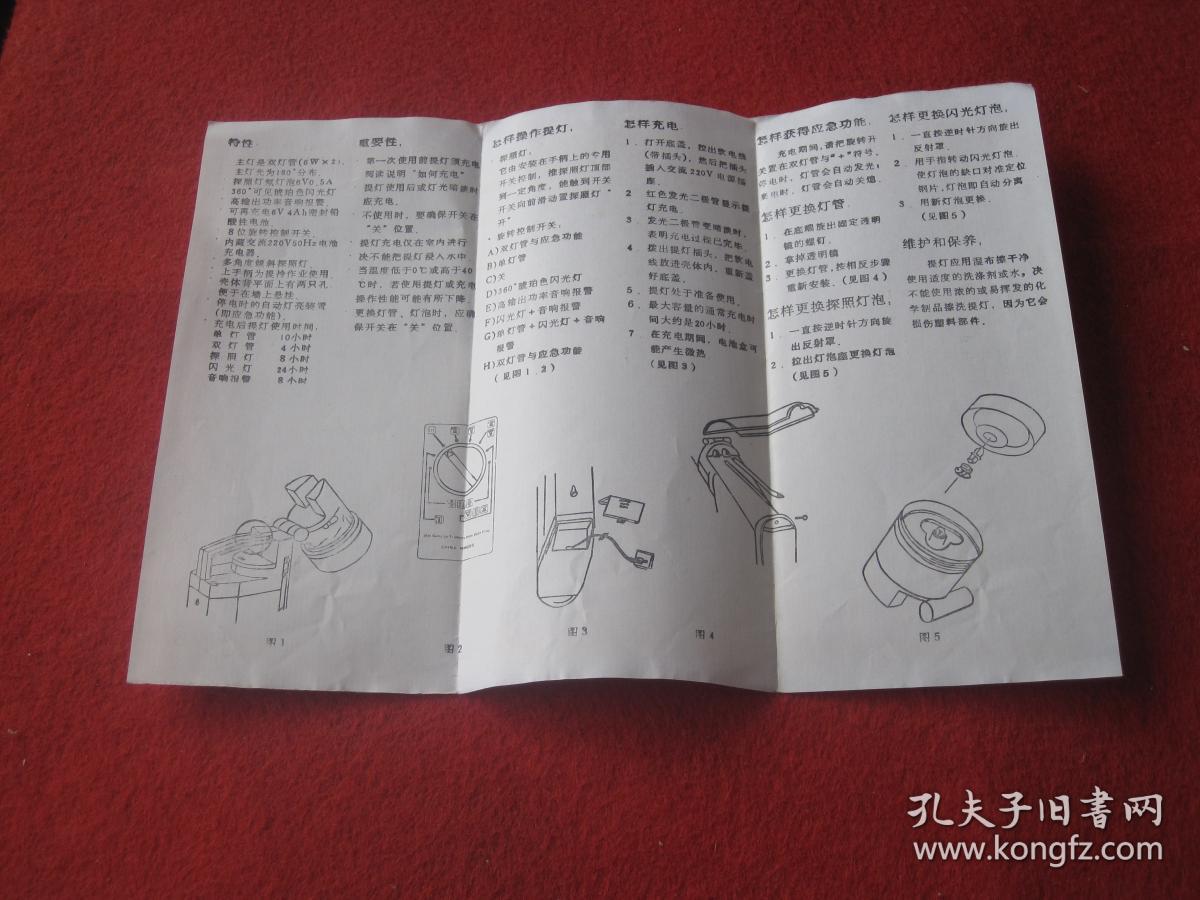 特性
主灯是双灯管(6W×2),
主灯光为180°分布.
探照灯氪灯泡6V0.5A
360°可见琥珀色闪光灯
高输出功率音响报警.
可再充电6V 4Ah密封铅
酸性电池.
8位旋转控制开关.
内藏交流220V50Hz电池
充电器.
多角度倾斜探照灯.
上手柄为提携作业使用.
壳体背平面上有两只孔.
便于在墙上悬挂.
停电时的自动灯亮装置
(即应急功能).
充电后提灯使用时间,
单灯管 10小时
双灯管 4小时
探照灯 8小时
闪光灯 24小时
音响报警 8小时
重要性,
第一次使用前提灯须充电
阅读说明“如何充电”
提灯使用后或灯光暗淡时
应充电.
不使用时,要确保开关在
“关”位置.
提灯充电仅在室内进行
决不能把提灯浸入水中
当温度低于0℃或高于40
℃时,若使用提灯或充电
操作性能可能有所下降.
更换灯管、灯泡时,应确
保开关在“关”位置.
怎样操作提灯,
探照灯,
它由安装在手柄上的专用
开关控制,推探照灯顶部
到一定角度,能触到开关
开关向前滑动置探照灯“
开”
旋转控制开关,
A)双灯管与应急功能
B)单灯管
C)关
D)360°琥珀色闪光灯
E)高输出功率音响报警
F)闪光灯+音响报警
G)单灯管+闪光灯+音响
报警
H)双灯管与应急功能
(见图1.2)
怎样充电.
1.打开底盖,拉出软电线
(带插头),然后把插头
插入交流220V电源插
座.
2 红色发光二极管显示提
灯充电.
3.发光二极管变暗淡时,
表明充电过程已完毕.
4.拨出提灯插头,把软电
线放进壳体内,重新盖
好底盖.
5.提灯处于准备使用.
6.最大容量的通常充电时
间大约是20小时.
7.在充电期间,电池盒可
能产生微热
(见图3)
怎样获得应急功能.
充电期间,请把旋转开
关置在双灯管与“+”符号,
停电时,灯管会自动发光;
来电时,灯管会自动关熄.
怎样更换灯管.
1.在底端旋出固定透明
镜的螺钉.
2.拿掉透明镜
3.更换灯管,按相反步骤
重新安装.(见图4)
怎样更换探照灯泡,
1.一直按逆时针方向旋
出反射罩.
2.拉出灯泡座更换灯泡
(见图5)
怎样更换闪光灯泡,
1.一直按逆时针方向旋出
反射罩.
2.用手指转动闪光灯泡.
使灯泡的缺口对准定位
钢片,灯泡即自动分离
3.用新灯泡更换.
(见图5)
维护和保养,
提灯应用湿布擦干净
使用适度的洗涤剂或水。决
不能使用浓的或易挥发的化
学制品擦洗提灯,因为它会
损伤塑料部件.
图1
图2
图3
图4
图5
孔夫子旧书网
www.kongfz.com